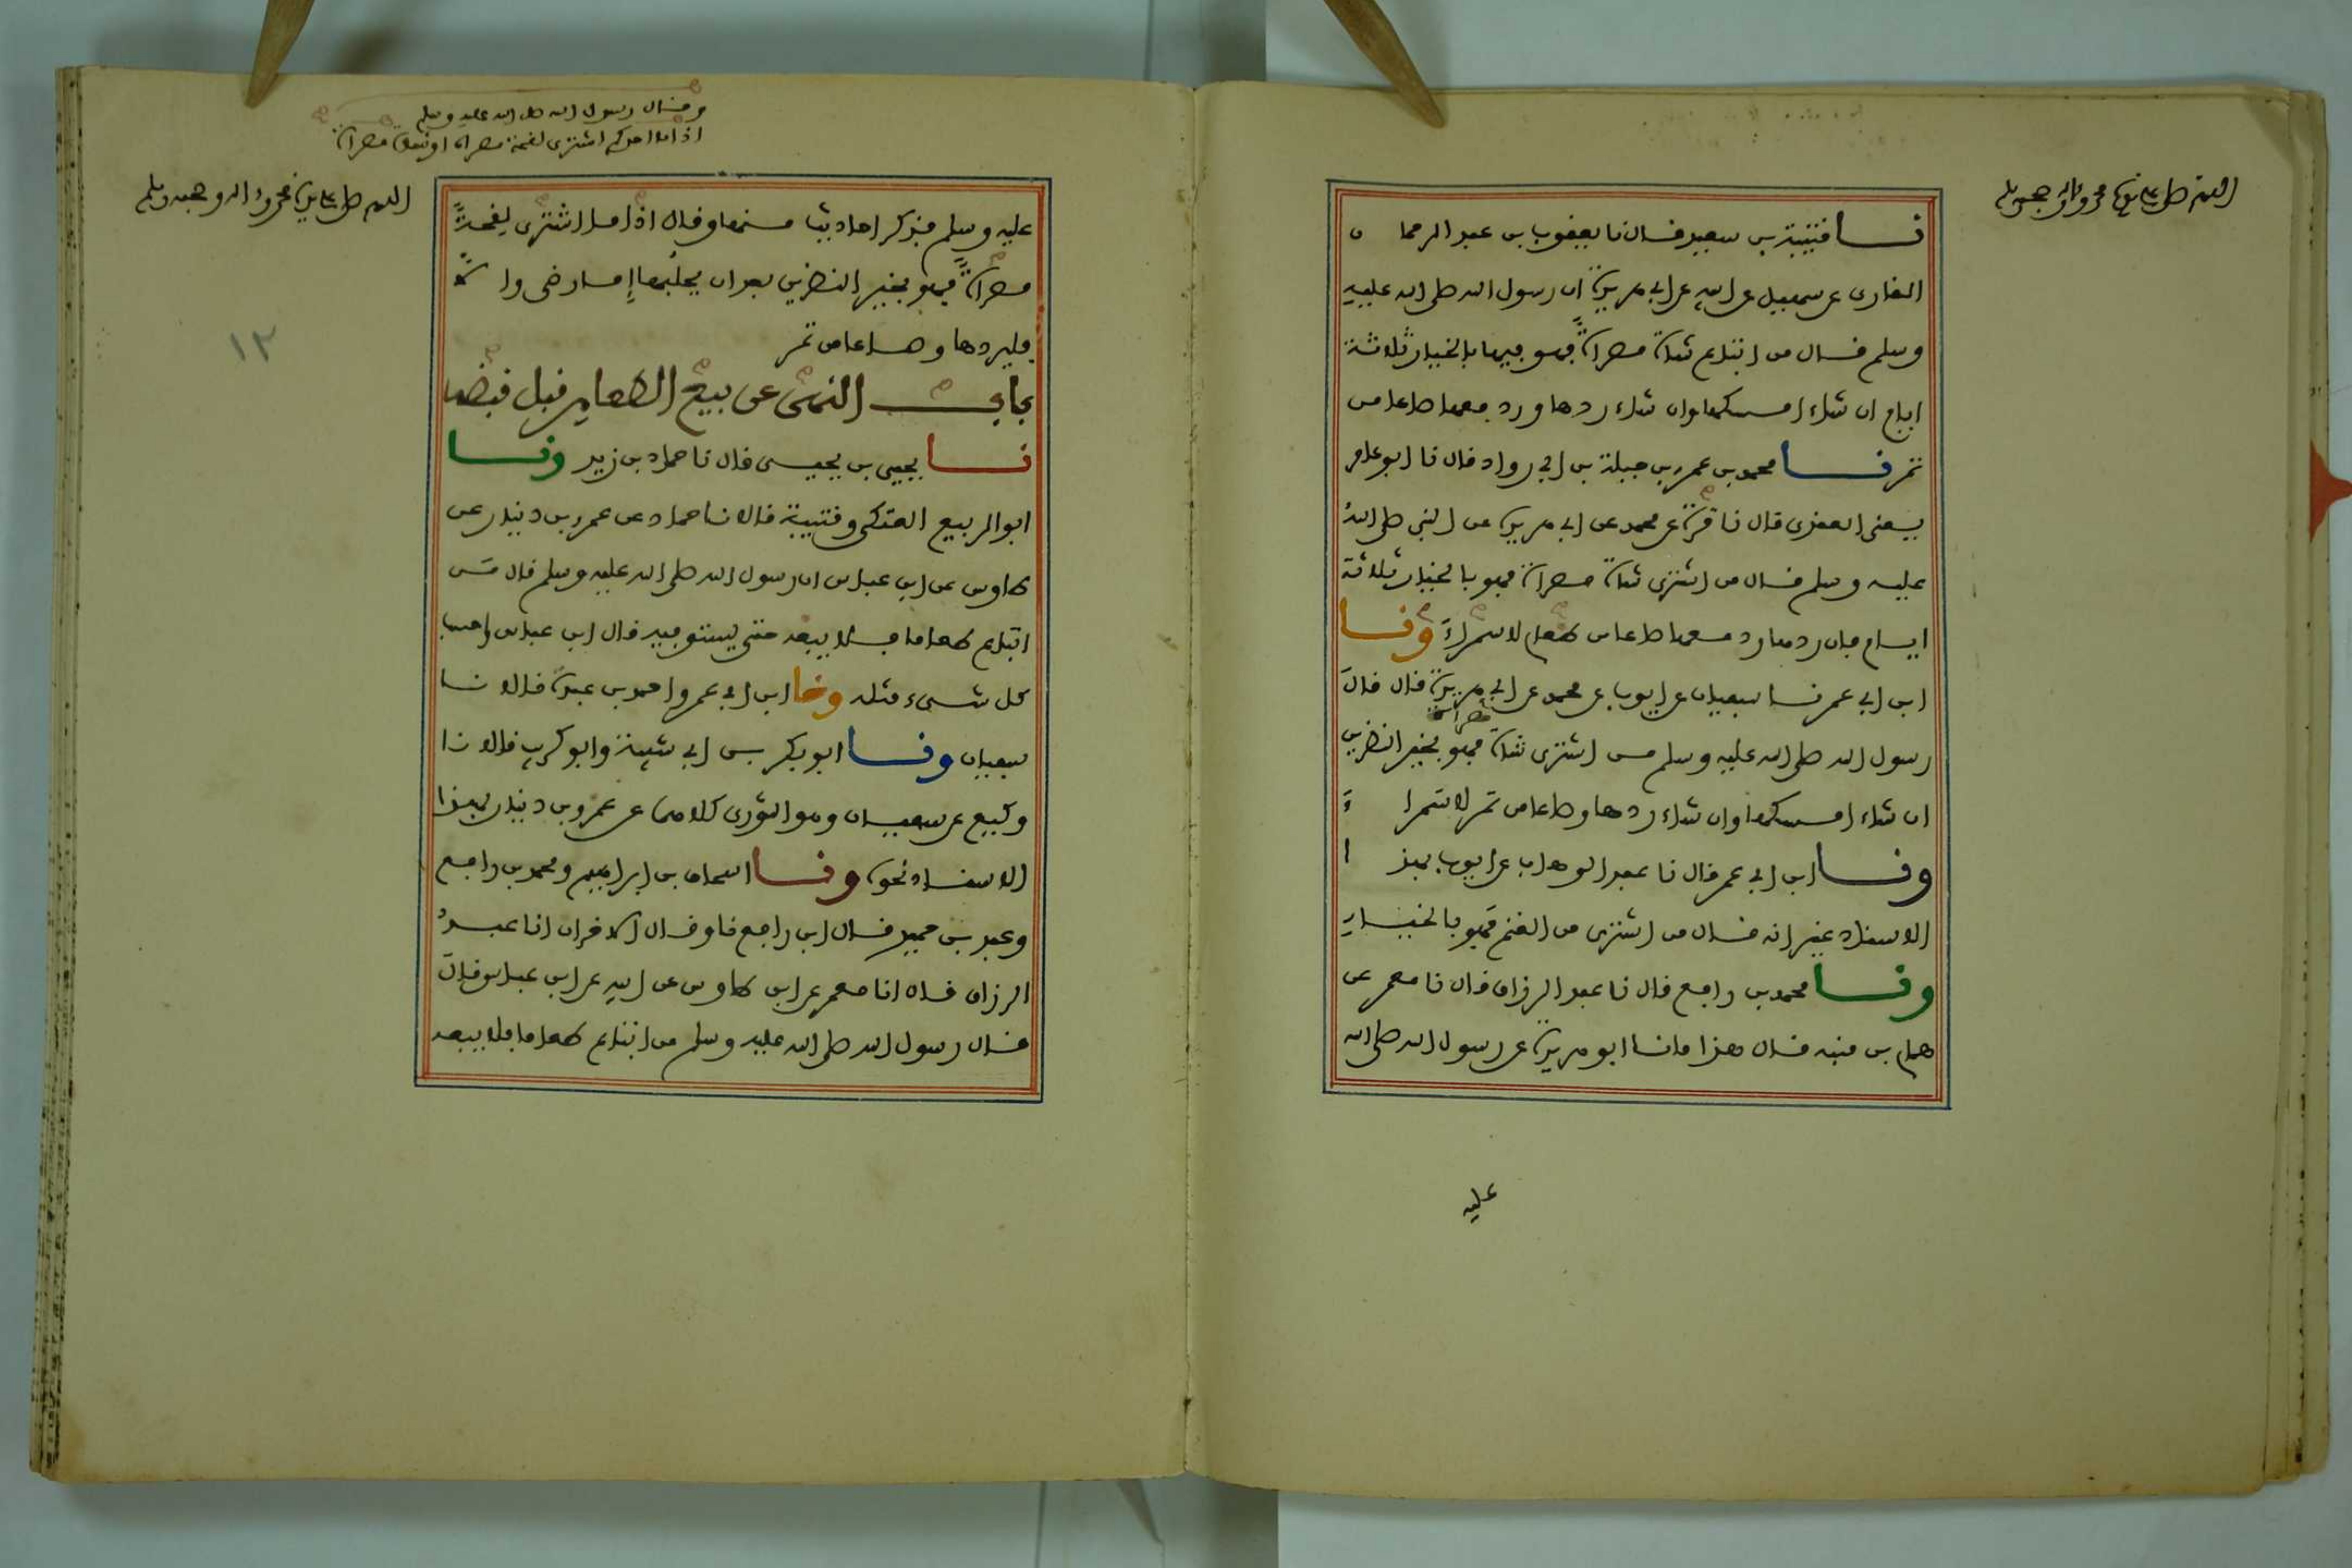 اللهم صل على سيدنا محمد واله وصحبه وسلم
نا قتيبة بن سعيد قال نا يعقوب بن عبد الرحمان
القارى عن سهيل عن ابيه عن ابى هريرة ان رسول الله صلى الله عليه
وسلم قال من ابتاع شاة مصراة فهو فيها بالخيار ثلاثة
ايام ان شاء امسكها وان شاء ردها ورد معها صاعا من
تمر نا محمد بن عمرو بن جبلة بن ابى رواد قال نا ابو عامر
يعنى العقدى قال نا قرة عن محمد عن ابى هريرة عن النبى صلى الله
عليه وسلم قال من اشترى شاة مصراة فهو بالخيار ثلاثة
ايام فان ردها رد معها صاعا من طعام لا سمراء ونا
ابن ابى عمر نا سفيان عن ايوب عن محمد عن ابى هريرة قال قال
مصراة
رسول الله صلى الله عليه وسلم من اشترى شاة فهو بخير النظرين
ان شاء امسكها وان شاء ردها وصاعا من تمر لا سمراء
ونا ابن ابى عمر قال نا عبد الوهاب عن ايوب بهذا
الاسناد غير انه قال من اشترى من الغنم فهو بالخيار
ونا محمد بن رافع قال نا عبد الرزاق قال نا معمر عن
همام بن منبه قال هذا ما نا ابو هريرة عن رسول الله صلى الله
عليه
وقال رسول الله صلى الله عليه وسلم
اذا ما احدكم اشترى لقحة مصراة او شاة مصراة
اللهم صل على سيدنا محمد واله وصحبه وسلم
عليه وسلم فذكر احاديثا منها وقال اذا ما اشترى لقحة
مصراة فهو بخير النظرين بعد ان يحلبها إما رضى وإلا
فليردها وصاعا من تمر
باب النهى عن بيع الطعام قبل قبضه
نا يحيى بن يحيى قال نا حماد بن زيد ونا
ابو الربيع العتكى وقتيبة قالا نا حماد عن عمرو بن دينار عن
طاوس عن ابن عباس ان رسول الله صلى الله عليه وسلم قال من
ابتاع طعاما فلا يبعه حتى يستوفيه قال ابن عباس واحسب
كل شىء مثله ونا ابن ابى عمر واحمد بن عبدة قالا نا
سفيان ونا ابو بكر بن ابى شيبة وابو كريب قالا نا
وكيع عن سفيان وهو الثورى كلاهما عن عمرو بن دينار بهذا
الاسناد نحوه ونا اسحاق بن ابراهيم ومحمد بن رافع
وعبد بن حميد قال ابن رافع نا وقال الاخران انا عبد
الرزاق قال انا معمر عن ابن طاوس عن ابيه عن ابن عباس قال
قال رسول الله صلى الله عليه وسلم من ابتاع طعاما فلا يبعه
١٢